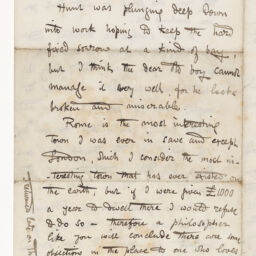 Hunt was plunging deep down
into work hoping to keep the hard
fixed sorrow at a kind of bay,
but I think the dear old boy cannot
manage it very well for he looks
broken and miserable.
Rome is the most interesting
Town I was ever in save and except
London, which I consider the most in-
teresting town that has ever existed on
the earth, but if I were given £1000
a year to dwell there I would refuse
to do so – therefore a philosopher
like you will conclude there are some
objections in the place to one who loves